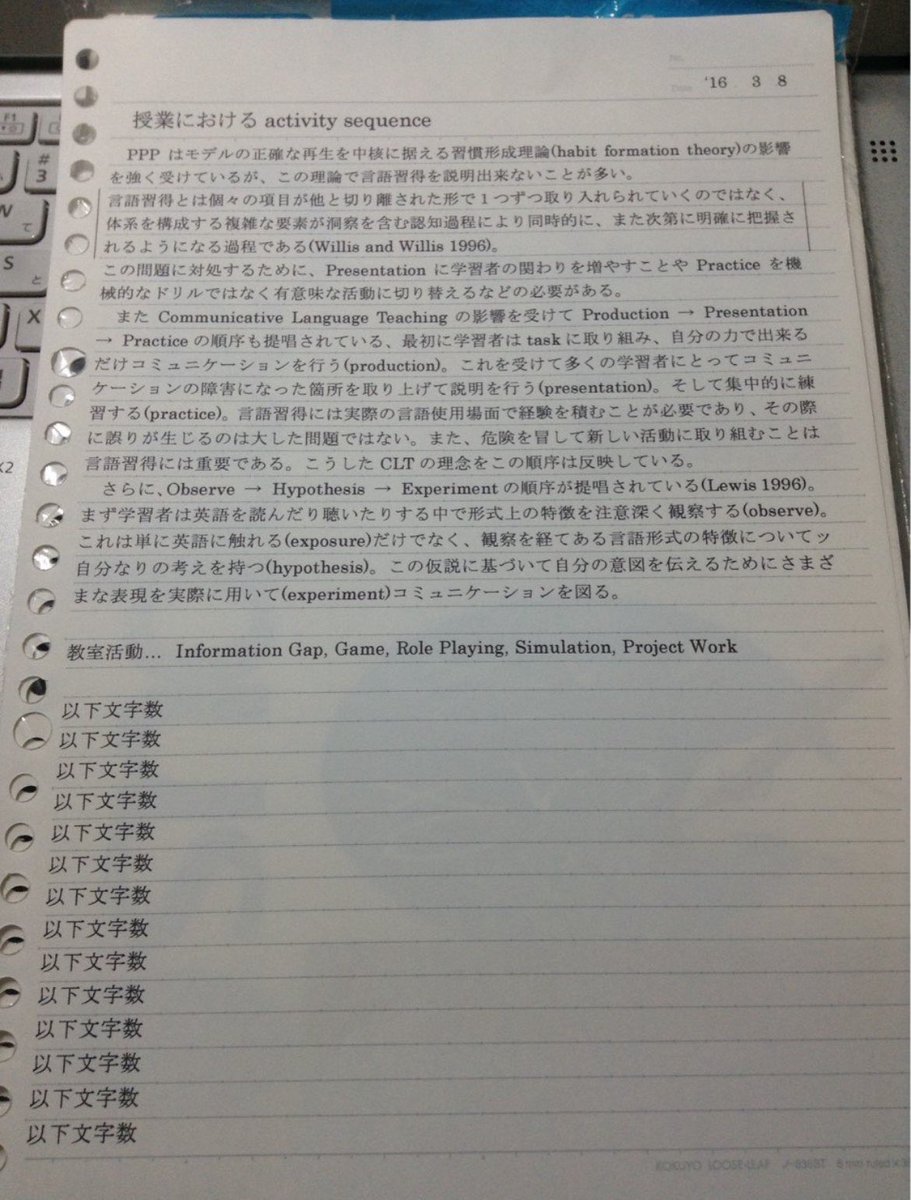 No.
Date '16 3 8
授業における activity sequence
PPP はモデルの正確な再生を中核に据える習慣形成理論(habit formation theory)の影響
を強く受けているが、この理論で言語習得を説明出来ないことが多い。
言語習得とは個々の項目が他と切り離された形で1つずつ取り入れられていくのではなく、
体系を構成する複雑な要素が洞察を含む認知過程により同時的に、また次第に明確に把握さ
れるようになる過程である(Willis and Willis 1996)。
この問題に対処するために、Presentation に学習者の関わりを増やすことや Practice を機
械的なドリルではなく有意味な活動に切り替えるなどの必要がある。
また Communicative Language Teaching の影響を受けて Production → Presentation
→ Practice の順序も提唱されている、最初に学習者は task に取り組み、自分の力で出来る
だけコミュニケーションを行う(production)。これを受けて多くの学習者にとってコミュニ
ケーションの障害になった箇所を取り上げて説明を行う(presentation)。そして集中的に練
習する(practice)。言語習得には実際の言語使用場面で経験を積むことが必要であり、その際
に誤りが生じるのは大した問題ではない。また、危険を冒して新しい活動に取り組むことは
言語習得には重要である。こうした CLT の理念をこの順序は反映している。
さらに、Observe → Hypothesis → Experiment の順序が提唱されている(Lewis 1996)。
まず学習者は英語を読んだり聴いたりする中で形式上の特徴を注意深く観察する(observe)。
これは単に英語に触れる(exposure)だけでなく、観察を経てある言語形式の特徴についてッ
自分なりの考えを持つ(hypothesis)。この仮説に基づいて自分の意図を伝えるためにさまざ
まな表現を実際に用いて(experiment)コミュニケーションを図る。
教室活動… Information Gap, Game, Role Playing, Simulation, Project Work
以下文字数
以下文字数
以下文字数
以下文字数
以下文字数
以下文字数
以下文字数
以下文字数
以下文字数
以下文字数
以下文字数
以下文字数
以下文字数
以下文字数
F1
#
3
W
て
S
と
X